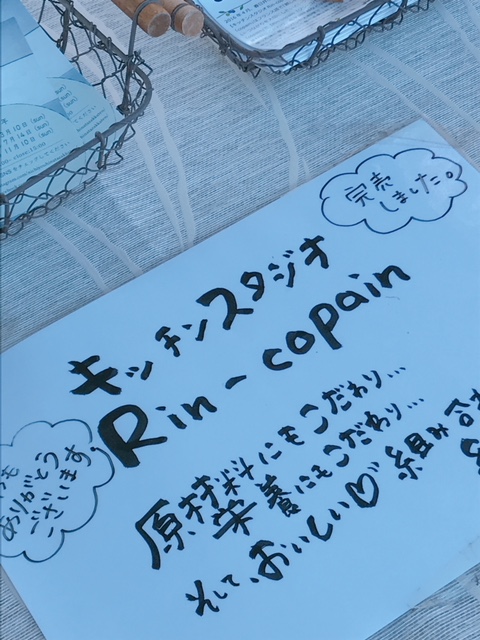 完売
しました。
キッチンスタジオ
Rin-copain
原材料にもこだわり...
栄養にもこだわり...
そして、おいしい♡組み合
ありがとう
ございます。